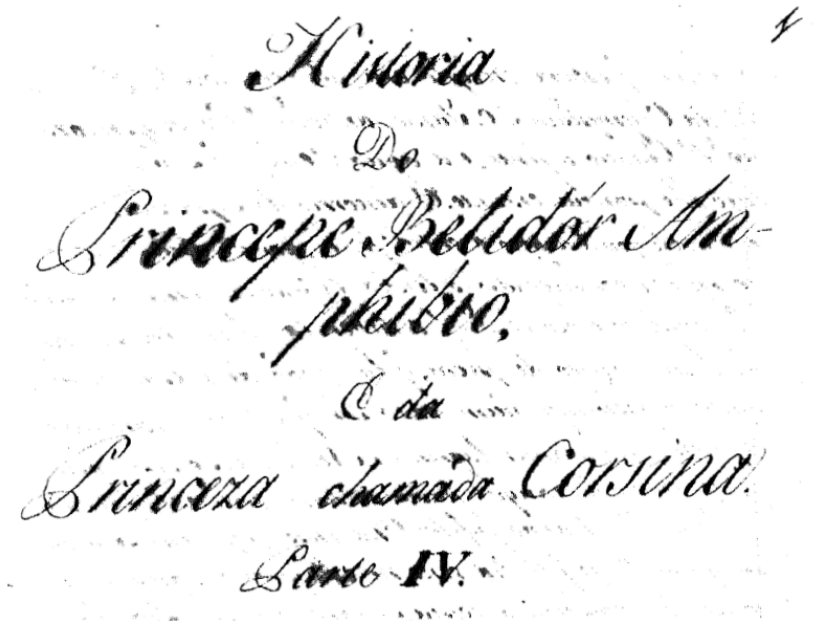 1
Historia
Do
Princepe Belidór Am-
phibio,
E da
Princeza chamada Corsina.
Parte IV.